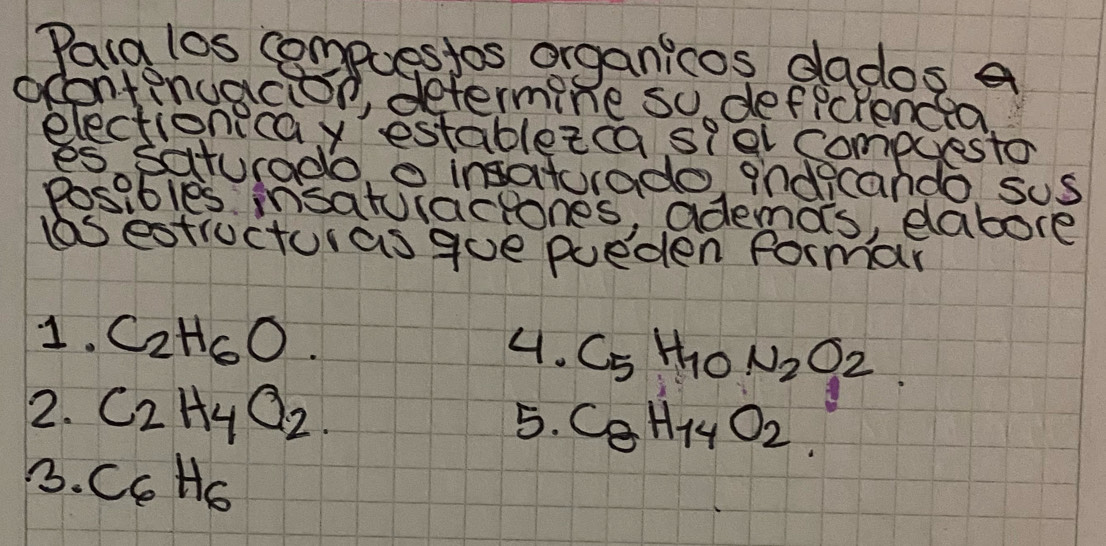 Para los compuestos organicos dados a
acontinuación, determine su deficiencia
electronica y establezca si el compuesto
es saturado o insaturado, indicando sus
posibles insaturaciones, además, elabore
las estructuras que pueden formar
1. C₂H₆O.
4. C₅ H₁₀ N₂ O₂.
2. C₂ H₄ O₂.
5. C₈ H₁₄ O₂.
3. C₆ H₆